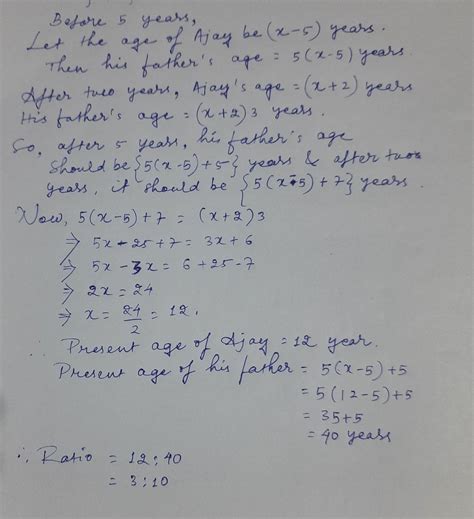 Before 5 years,
Let the age of Ajay be (x-5) years.
Then his father's age = 5(x-5) years
After two years, Ajay's age = (x+2) years
His father's age = (x+2)3 years.
So, after 5 years, his father's age
should be {5(x-5)+5} years & after two
years, it should be {5(x-5)+7} years.
Now, 5(x-5)+7 = (x+2)3
⇒ 5x-25+7 = 3x+6
⇒ 5x-3x = 6+25-7
⇒ 2x = 24
⇒ x = 24/2 = 12.
∴ Present age of Ajay = 12 year.
Present age of his father = 5(x-5)+5
= 5(12-5)+5
= 35+5
= 40 years
∴ Ratio = 12:40
= 3:10